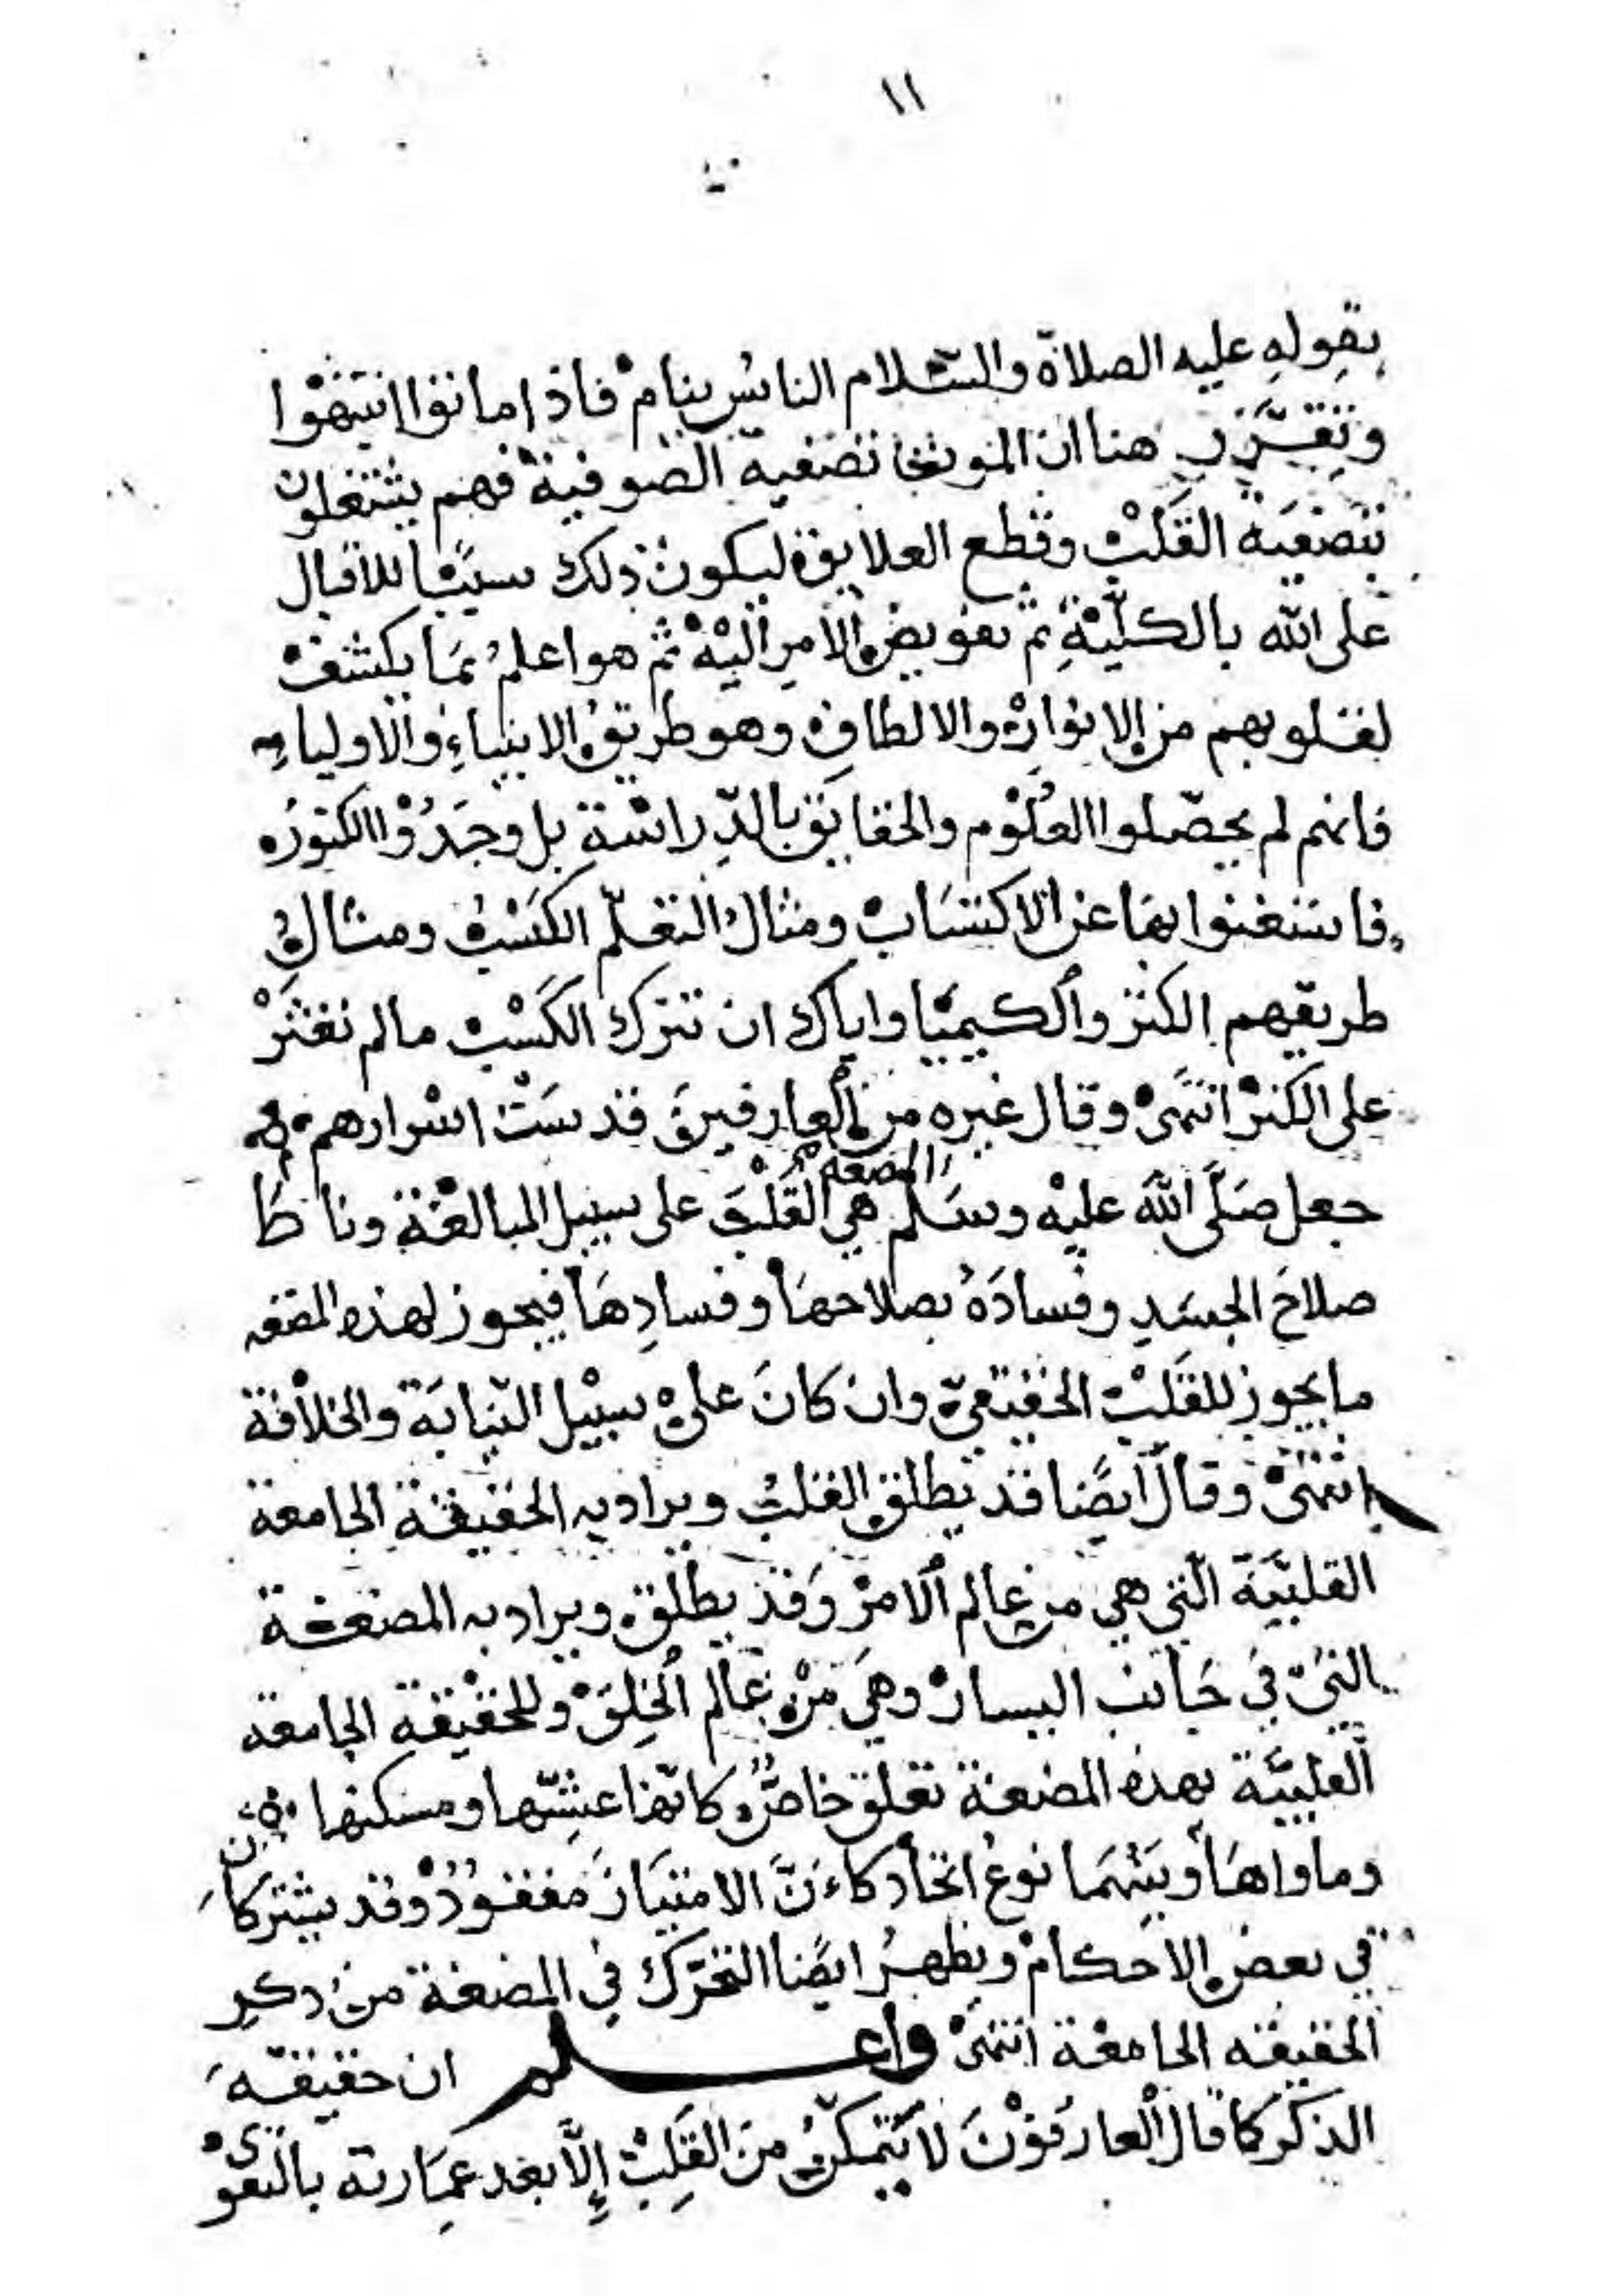 ١١
بقوله عليه الصلاة والسّلام الناس نيام فاذا ماتوا انتبهوا
وتقرّر هنا ان الموت تصفية الصّوفية فهم يشتغلون
بتصفية القَلْب وقطع العلايق ليكون ذلك سببًا للاقبال
على الله بالكلّيّةِ ثمّ تفويض الامرِ اليْه ثمّ هو اعلمُ بمَا يكشف
لقلوبهم من الانوارْ والالطافِ وهو طريق الانبياءِ والاولياءِ
فانهم لم يحصّلوا العُلُوْم والحقايق بالدّراسَة بل وجَدُوْا الكنوزه
فاستغنوا بها عن الاكتسَاب ومثال التعلّم الكَسْب ومثال
طريقهم الكنز والكيميَا واياك ان تترك الكَسْب مالم تعثَرْ
على الكنزْ انتهَىْ وقال غيره من العارفينَ قدسَتْ اسْرارهم
جعل صَلَّى اللهَ عليْه وسَلم المضغه هي القَلْبَ على سبيل المبالغة وناطَ
صلاحَ الجسَدِ وفسادَهُ بصلاحهَا وفسادِهَا فيجوز لهذه المضغه
ما يجوز للقَلْب الحقيقيّ وان كانَ علىْ سبيْل النّيابَة والخلافة
انتهىْ وقال ايضًا قد يطلق القلبُ ويراد به الحقيقةِ الجامعة
القلبيَّة الّتي هي من عالم الامرْ وَقدْ يطلق ويراد به المضغة
التيْ فِيْ جَانب اليسارْ وهيَ مِنْ عَالم الخلِقَ وللحقيْقةِ الجامعة
القلبيَّة بهذه المضغة تعلق خاصٌّ كانّها عشّها ومسكنها
وماواهَا وبينهمَا نوعُ اتحاد كاءَنَّ الامتيَازَ مفقودُ وقد يشتركان
في بعض الاحكامْ ويظهرُ ايضًا التحّرك في المضغة من ذكرِ
الحقيقه الجامعْة انتهىْ واعلم ان حقيقةَ
الذكر كما قال العارفوْنَ لا يَتمكّن منَ القَلِبْ إلّا بعد عمَارته بالتقوىْ